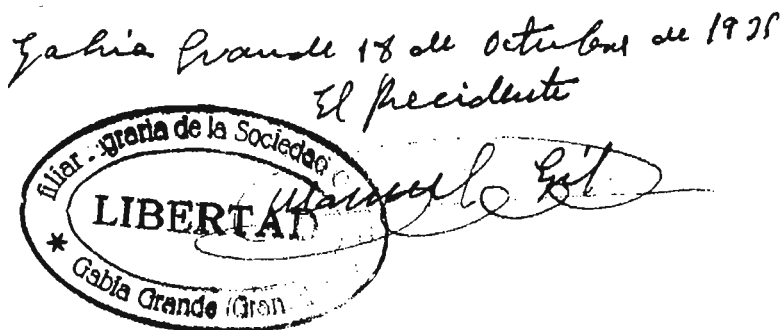 Gabia Grande 18 de Octubre de 1935
El Precidente
filiar Agraria de la Sociedad
LIBERTAD
Manuel Gil
* Gabia Grande (Gran